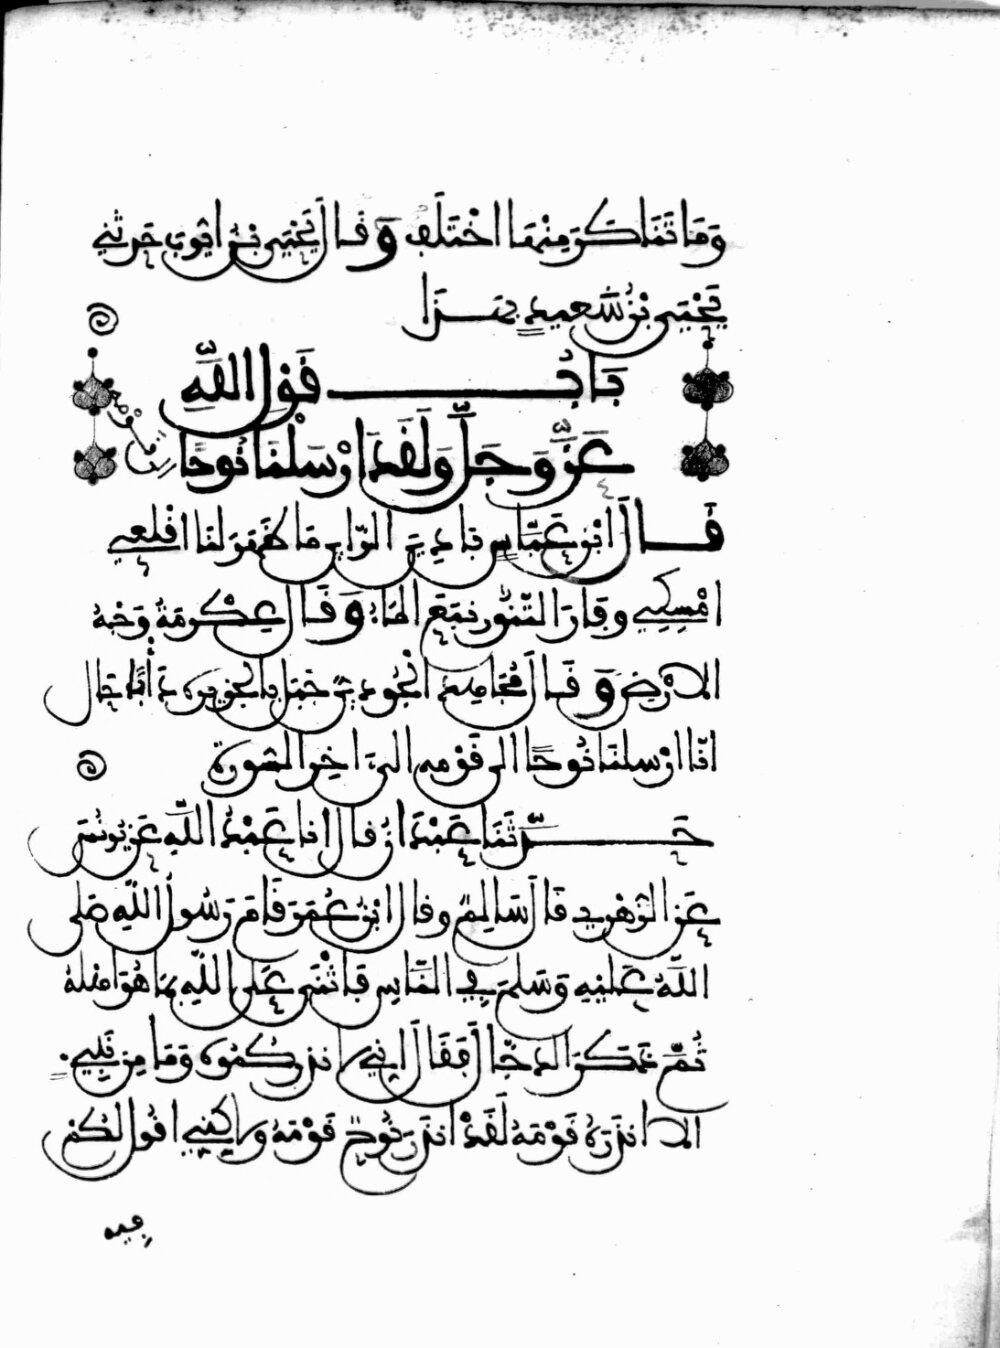 وَمَا تَنَاكَرَ مِنْهَا اخْتَلَفَ وَقَالَ يَحْيَى بْنُ أَيُّوبَ حَدَّثَنِي
يَحْيَى بْنُ سَعِيدٍ بِهَذَا
بَابُ قَوْلِ اللَّهِ
عَزَّ وَجَلَّ وَلَقَدْ أَرْسَلْنَا نُوحًا
قَالَ ابْنُ عَبَّاسٍ بَادِيَ الرَّأْيِ مَا ظَهَرَ لَنَا أَقْلِعِي
أَمْسِكِي وَفَارَ التَّنُّورُ نَبَعَ الْمَاءُ وَقَالَ عِكْرِمَةُ وَجْهُ
الْأَرْضِ وَقَالَ مُجَاهِدٌ الْجُودِيُّ جَبَلٌ بِالْجَزِيرَةِ دَأْبٌ حَالٌ
إِنَّا أَرْسَلْنَا نُوحًا إِلَى قَوْمِهِ إِلَى آخِرِ السُّورَةِ
حَدَّثَنَا عَبْدَانُ قَالَ أَنَا عَبْدُ اللَّهِ عَنْ يُونُسَ
عَنِ الزُّهْرِيِّ قَالَ سَالِمٌ وَقَالَ ابْنُ عُمَرَ قَامَ رَسُولُ اللَّهِ صَلَّى
اللَّهُ عَلَيْهِ وَسَلَّمَ فِي النَّاسِ فَأَثْنَى عَلَى اللَّهِ بِمَا هُوَ أَهْلُهُ
ثُمَّ ذَكَرَ الدَّجَّالَ فَقَالَ إِنِّي لَأُنْذِرُكُمُوهُ وَمَا مِنْ نَبِيٍّ
إِلَّا أَنْذَرَهُ قَوْمَهُ لَقَدْ أَنْذَرَ نُوحٌ قَوْمَهُ وَلَكِنِّي أَقُولُ لَكُمْ
فيه